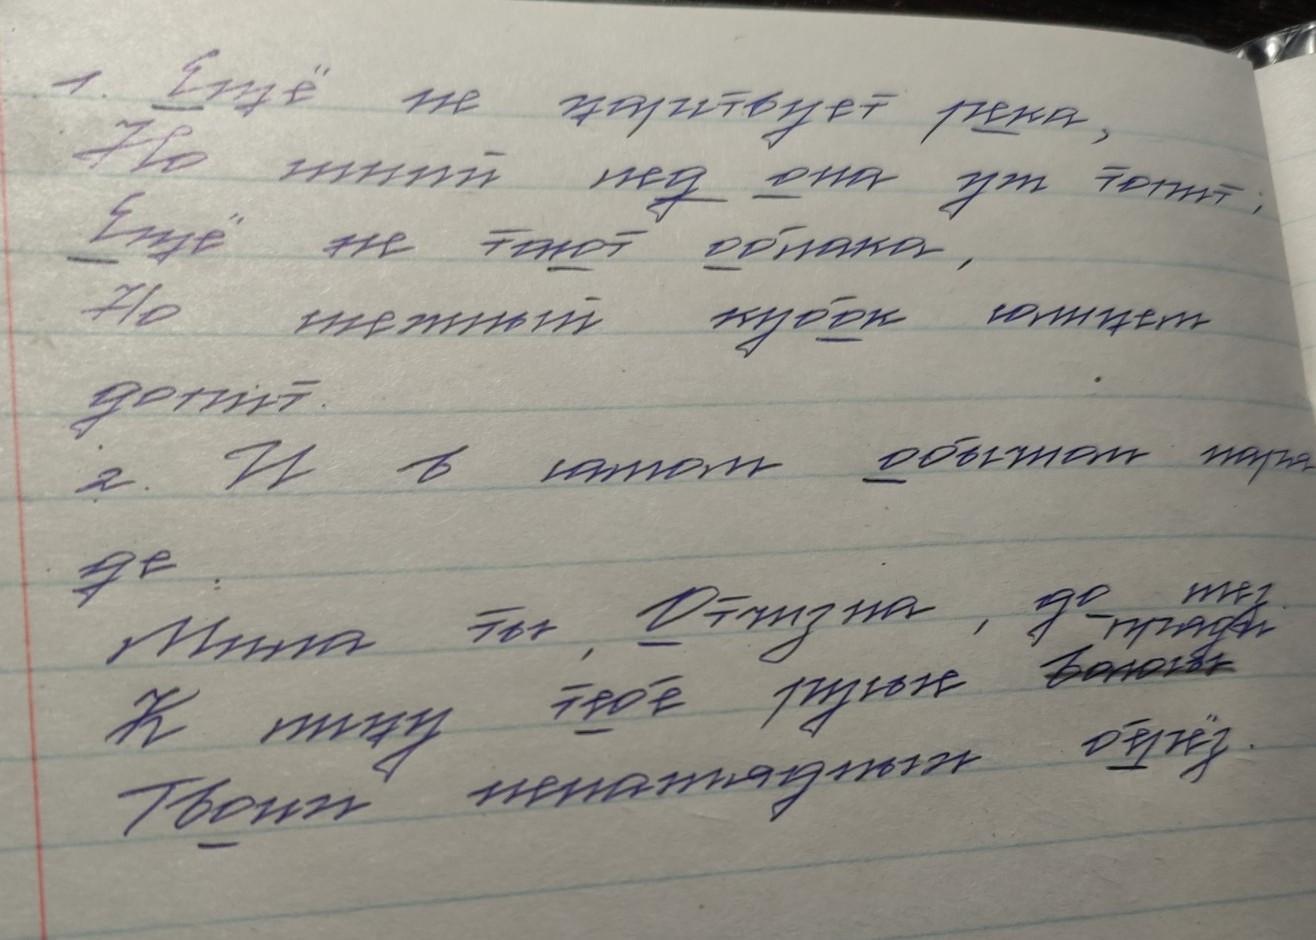 1. Ещё не царствует река,
Но синий лёд она уж топит;
Ещё не тают облака,
Но снежный кубок солнцем
допит.
2. И в самом обычном наря
де
Мила ты, Отчизна, до слёз.
К лицу тебе русые пряди
Твоих ненаглядных берёз.